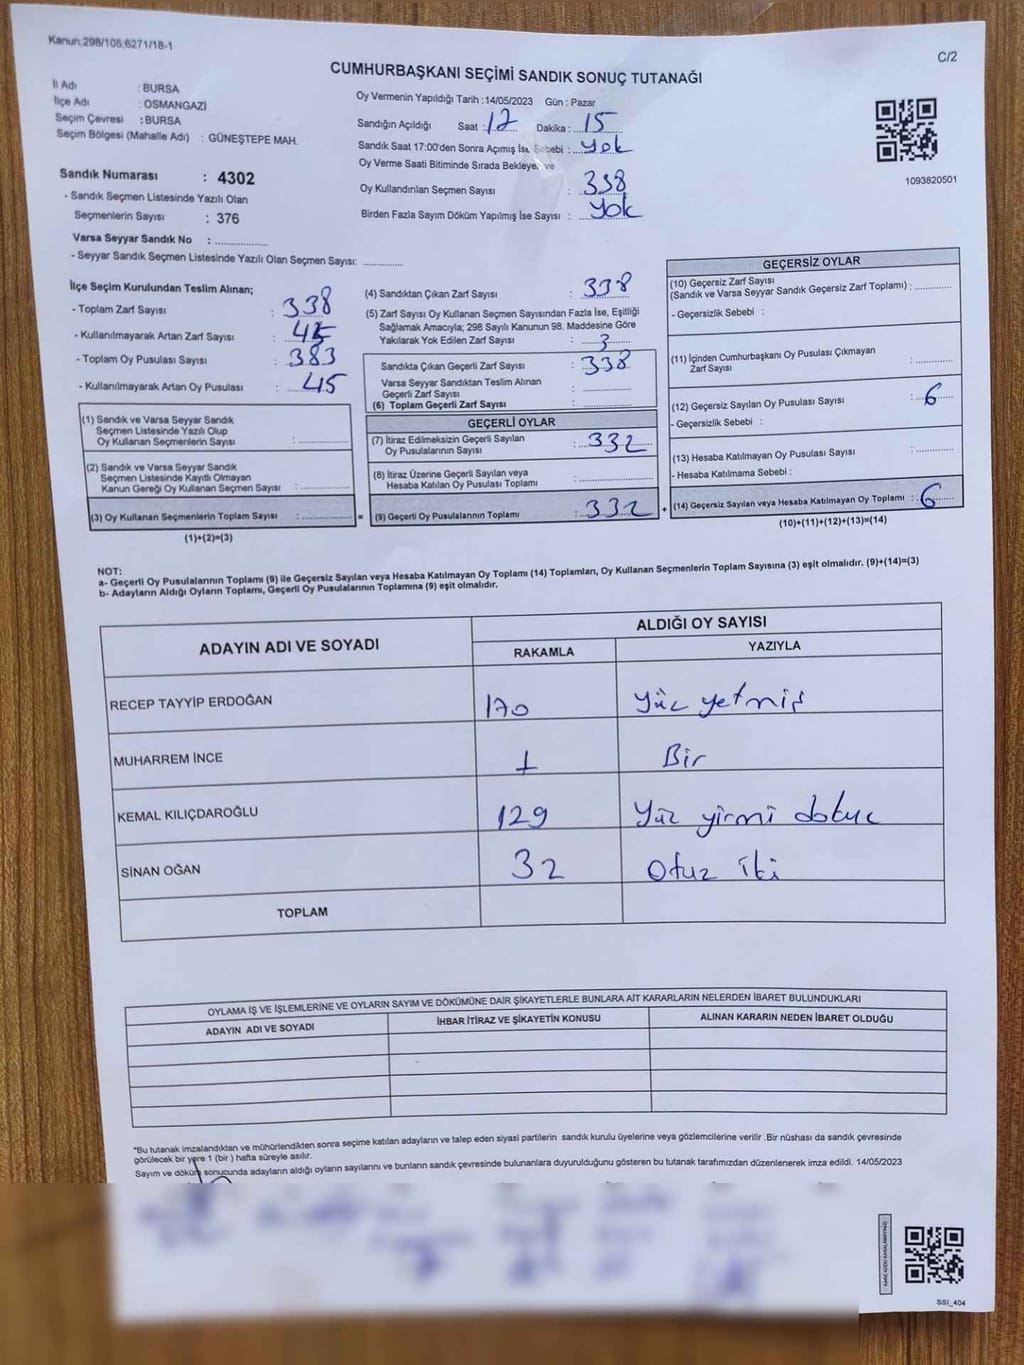 Kanun;298/105;6271/18-1
C/2
CUMHURBAŞKANI SEÇİMİ SANDIK SONUÇ TUTANAĞI
İl Adı : BURSA
İlçe Adı : OSMANGAZİ
Seçim Çevresi : BURSA
Seçim Bölgesi (Mahalle Adı) : GÜNEŞTEPE MAH.
Sandık Numarası : 4302
- Sandık Seçmen Listesinde Yazılı Olan
Seçmenlerin Sayısı : 376
Varsa Seyyar Sandık No :
- Seyyar Sandık Seçmen Listesinde Yazılı Olan Seçmen Sayısı:
Oy Vermenin Yapıldığı Tarih : 14/05/2023 Gün : Pazar
Sandığın Açıldığı Saat : 17 Dakika : 15
Sandık Saat 17:00'den Sonra Açımış İse Sebebi : Yok
Oy Verme Saati Bitiminde Sırada Bekleyen ve
Oy Kullandırılan Seçmen Sayısı : 338
Birden Fazla Sayım Döküm Yapılmış İse Sayısı : Yok
1093820501
İlçe Seçim Kurulundan Teslim Alınan;
- Toplam Zarf Sayısı : 338
- Kullanılmayarak Artan Zarf Sayısı : 45
- Toplam Oy Pusulası Sayısı : 383
- Kullanılmayarak Artan Oy Pusulası : 45
(1) Sandık ve Varsa Seyyar Sandık
Seçmen Listesinde Yazılı Olup
Oy Kullanan Seçmenlerin Sayısı :
(2) Sandık ve Varsa Seyyar Sandık
Seçmen Listesinde Kayıtlı Olmayan
Kanun Gereği Oy Kullanan Seçmen Sayısı :
(3) Oy Kullanan Seçmenlerin Toplam Sayısı : =
(1)+(2)=(3)
(4) Sandıktan Çıkan Zarf Sayısı : 338
(5) Zarf Sayısı Oy Kullanan Seçmen Sayısından Fazla İse, Eşitliği
Sağlamak Amacıyla; 298 Sayılı Kanunun 98. Maddesine Göre
Yakılarak Yok Edilen Zarf Sayısı : 3
Sandıkta Çıkan Geçerli Zarf Sayısı : 338
Varsa Seyyar Sandıktan Teslim Alınan
Geçerli Zarf Sayısı :
(6) Toplam Geçerli Zarf Sayısı :
GEÇERLİ OYLAR
(7) İtiraz Edilmeksizin Geçerli Sayılan
Oy Pusulalarının Sayısı : 332
(8) İtiraz Üzerine Geçerli Sayılan veya
Hesaba Katılan Oy Pusulası Toplamı :
(9) Geçerli Oy Pusulalarının Toplamı : 332 +
GEÇERSİZ OYLAR
(10) Geçersiz Zarf Sayısı
(Sandık ve Varsa Seyyar Sandık Geçersiz Zarf Toplamı) :
- Geçersizlik Sebebi :
(11) İçinden Cumhurbaşkanı Oy Pusulası Çıkmayan
Zarf Sayısı :
(12) Geçersiz Sayılan Oy Pusulası Sayısı : 6
- Geçersizlik Sebebi :
(13) Hesaba Katılmayan Oy Pusulası Sayısı :
- Hesaba Katılmama Sebebi :
(14) Geçersiz Sayılan veya Hesaba Katılmayan Oy Toplamı : 6
(10)+(11)+(12)+(13)=(14)
NOT:
a- Geçerli Oy Pusulalarının Toplamı (9) ile Geçersiz Sayılan veya Hesaba Katılmayan Oy Toplamı (14) Toplamları, Oy Kullanan Seçmenlerin Toplam Sayısına (3) eşit olmalıdır. (9)+(14)=(3)
b- Adayların Aldığı Oyların Toplamı, Geçerli Oy Pusulalarının Toplamına (9) eşit olmalıdır.
ADAYIN ADI VE SOYADI
ALDIĞI OY SAYISI
RAKAMLA YAZIYLA
RECEP TAYYİP ERDOĞAN 170 Yüz yetmiş
MUHARREM İNCE 1 Bir
KEMAL KILIÇDAROĞLU 129 Yüz yirmi dokuz
SİNAN OĞAN 32 Otuz iki
TOPLAM
OYLAMA İŞ VE İŞLEMLERİNE VE OYLARIN SAYIM VE DÖKÜMÜNE DAİR ŞİKAYETLERLE BUNLARA AİT KARARLARIN NELERDEN İBARET BULUNDUKLARI
ADAYIN ADI VE SOYADI İHBAR İTİRAZ VE ŞİKAYETİN KONUSU ALINAN KARARIN NEDEN İBARET OLDUĞU
*Bu tutanak imzalandıktan ve mühürlendikten sonra seçime katılan adayların ve talep eden siyasi partilerin sandık kurulu üyelerine veya gözlemcilerine verilir .Bir nüshası da sandık çevresinde
görülecek bir yere 1 (bir ) hafta süreyle asılır.
Sayım ve döküm sonucunda adayların aldığı oyların sayılarını ve bunların sandık çevresinde bulunanlara duyurulduğunu gösteren bu tutanak tarafımızdan düzenlenerek imza edildi. 14/05/2023
KARE KODU KARALAMAYINIZ!
SSI_404